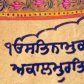 ੴਸਤਿਨਾਮੁ
ਅਕਾਲਮੂਰਤਿ